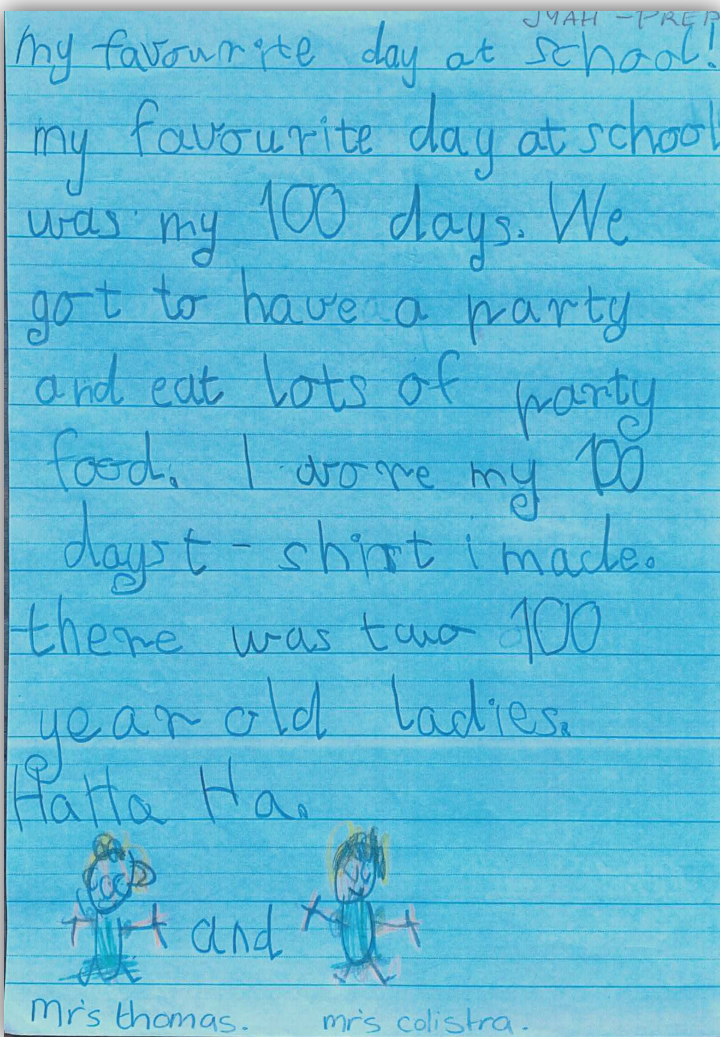 JYAH - PREP
my favourite day at school!
my favourite day at school
was my 100 days. We
got to have a party
and eat lots of party
food. I wore my 100
days t - shirt i made.
there was two 100
year old ladies.
HaHa Ha.
and
Mrs thomas. mrs colistra.